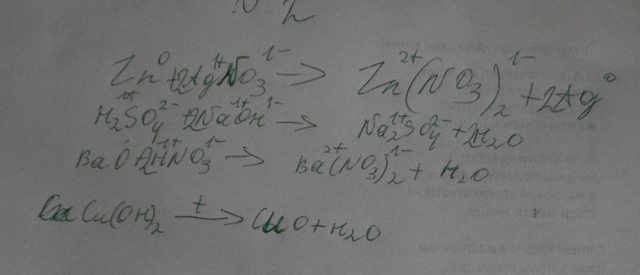 Zn⁰ + 2Ag¹⁺NO₃¹⁻ → Zn²⁺(NO₃)₂¹⁻ + 2Ag⁰
H₂¹⁺SO₄²⁻ + 2Na¹⁺OH¹⁻ → Na₂¹⁺SO₄²⁻ + 2H₂O
BaO + 2H¹⁺NO₃¹⁻ → Ba²⁺(NO₃)₂¹⁻ + H₂O
Cu(OH)₂ →ᵗ CuO + H₂O